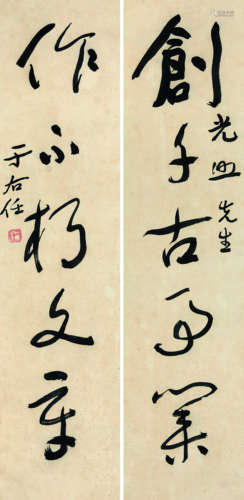 創千古事業
光照先生
作不朽文章
于右任